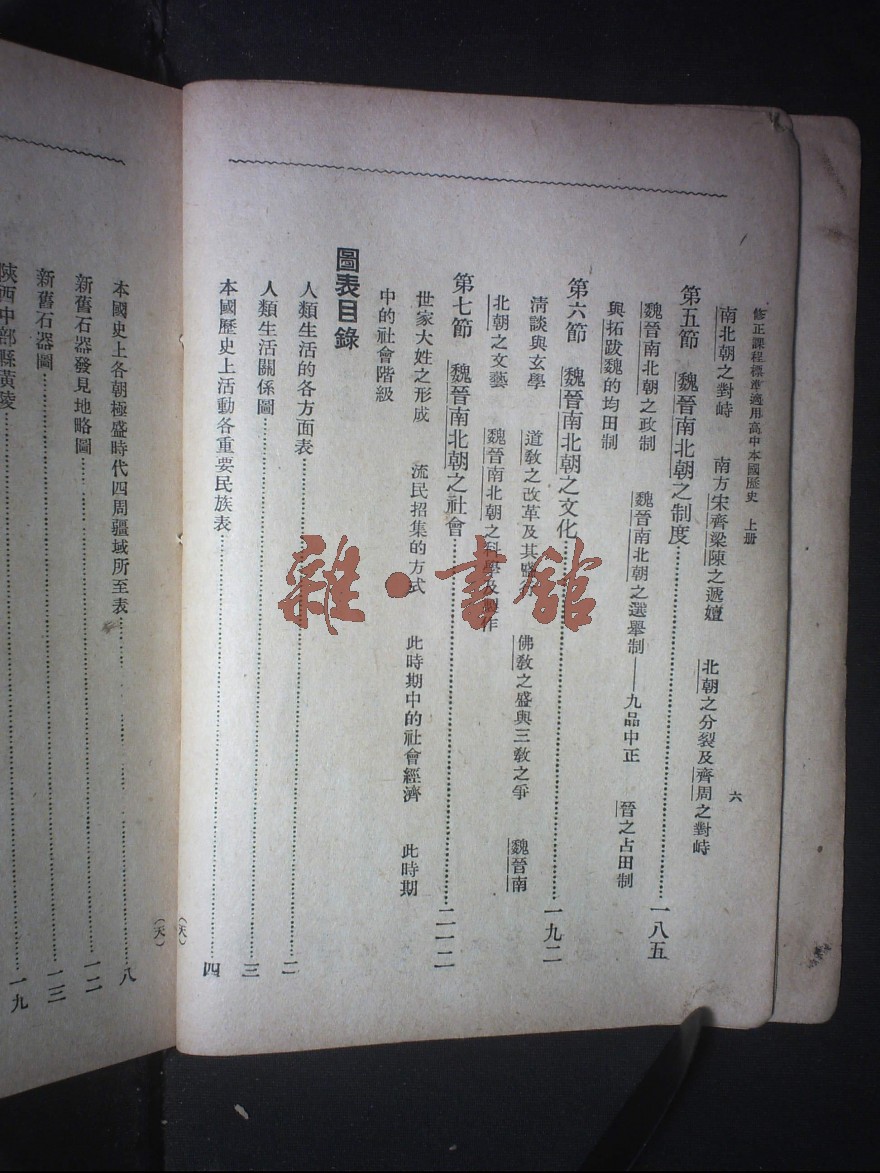 修正課程標準適用高中本國歷史　上册
六
南北朝之對峙　南方宋齊梁陳之遞嬗　北朝之分裂及齊周之對峙
第五節　魏晉南北朝之制度……一八五
魏晉南北朝之政制　魏晉南北朝之選舉制——九品中正　晉之占田制
與拓跋魏的均田制
第六節　魏晉南北朝之文化……一九二
淸談與玄學　道敎之改革及其盛行　佛敎之盛與三敎之爭　魏晉南
北朝之文藝　魏晉南北朝之科學及製作
第七節　魏晉南北朝之社會……二一二
世家大姓之形成　流民招集的方式　此時期中的社會經濟　此時期
中的社會階級
圖表目錄
人類生活的各方面表……二
人類生活關係圖……三
本國歷史上活動各重要民族表……四
（天）
（天）
本國史上各朝極盛時代四周疆域所至表……八
新舊石器發見地略圖……一二
新舊石器圖……一三
陝西中部縣黃陵……一九
雜·書館